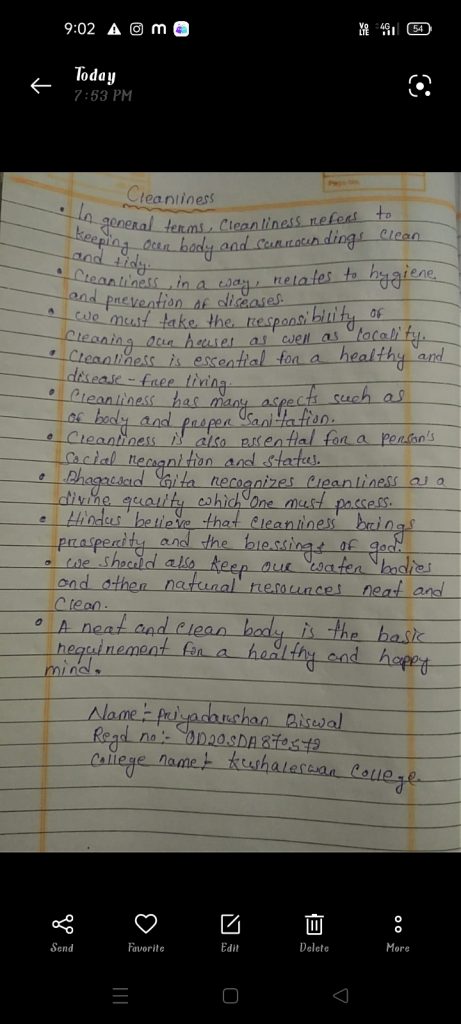 9:02
Vo LTE 4G 54
Today
7:53 PM
Page No.
Cleanliness
• In general terms, Cleanliness refers to
keeping our body and surroundings clean
and tidy.
• Cleanliness, in a way, relates to hygiene
and prevention of diseases.
• we must take the responsibility of
cleaning our houses as well as locality.
• Cleanliness is essential for a healthy and
disease-free living.
• Cleanliness has many aspects such as
of body and proper Sanitation.
• Cleanliness is also essential for a person's
Social recognition and status.
• Bhagawad Gita recognizes cleanliness as a
divine quality which one must possess.
• Hindus believe that cleanliness brings
prosperity and the blessings of god.
• we should also keep our water bodies
and other natural resources neat and
Clean.
• A neat and clean body is the basic
requirement for a healthy and happy
mind.
Name:- Priyadarshan Biswal
Regd no:- OD20SDA870572
College name:- Kushaleswar College.
Send Favorite Edit Delete More